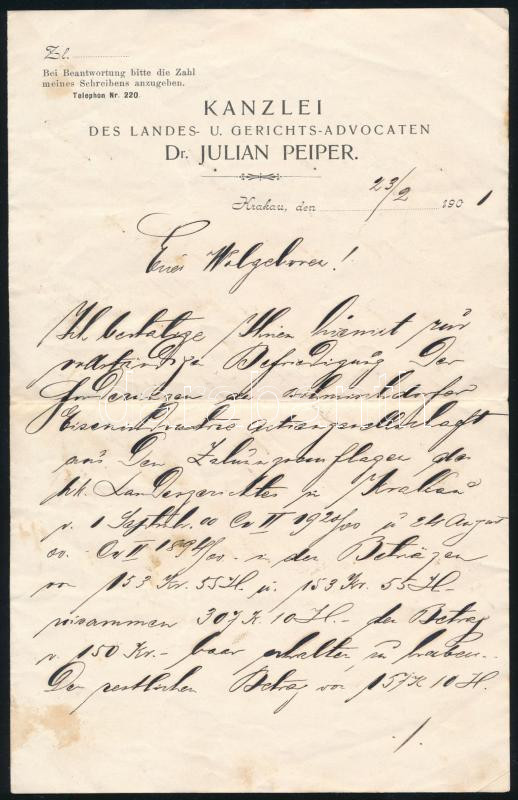 Zl.
Bei Beantwortung bitte die Zahl
meines Schreibens anzugeben.
Telephon Nr. 220.
KANZLEI
DES LANDES- U. GERICHTS-ADVOCATEN
Dr. JULIAN PEIPER.
Krakau, den 23/2 1901
Euer Wolgeboren!
Ich bestätige Ihnen hiemit zur
vollständigen Befriedigung der
Forderungen der
Eisenindustrie Actiengesellschaft
aus den Zalungsauflagen des
k.k. Landesgerichtes in Krakau
v. 1 Septbr. 00 Cw II 1920/00 u 24 August
00. Cw II 1894/00 in den Beträgen
von 153 Kr. 55 H. u. 153 Kr. 55 H
zusammen 307 K. 10 H. den Betrag
v. 150 Kr. baar erhalten zu haben.
Den restlichen Betrag von 157 K 10 H.
./.